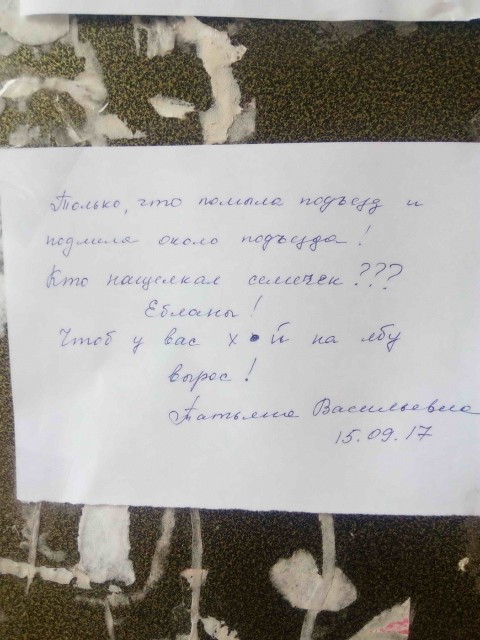 Только, что помыла подъезд и
подмела около подъезда!
Кто нащелкал семечек???
Ебланы!
Чтоб у вас х•й на лбу
вырос!
Татьяна Васильевна
15.09.17